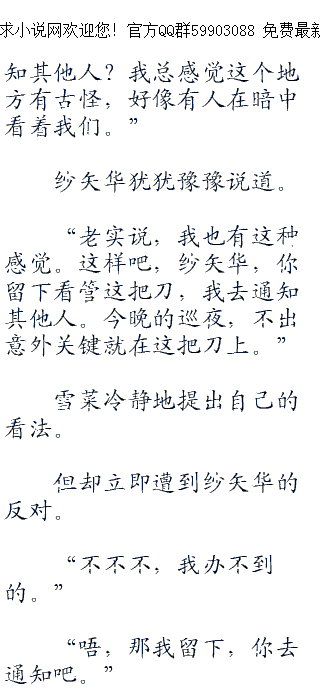 求小说网欢迎您！官方QQ群59903088 免费最新
知其他人？我总感觉这个地
方有古怪，好像有人在暗中
看着我们。”
纱矢华犹犹豫豫说道。
“老实说，我也有这种
感觉。这样吧，纱矢华，你
留下看管这把刀，我去通知
其他人。今晚的巡夜，不出
意外关键就在这把刀上。”
雪菜冷静地提出自己的
看法。
但却立即遭到纱矢华的
反对。
“不不不，我办不到
的。”
“唔，那我留下，你去
通知吧。”